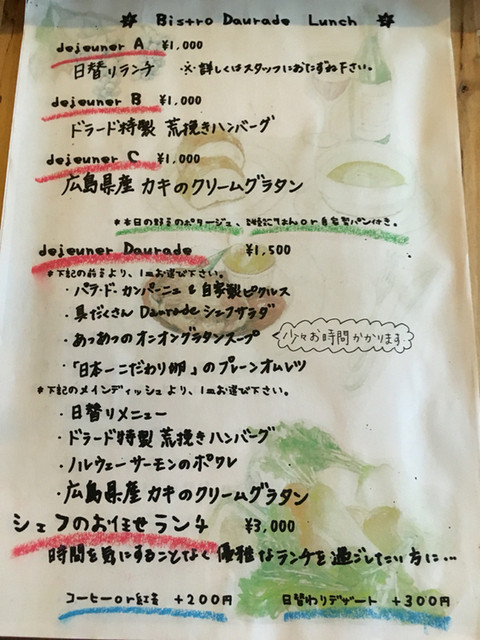 Bistro Daurade Lunch
dejeuner A ¥1,000
日替りランチ ※詳しくはスタッフにおたずね下さい。
dejeuner B ¥1,000
ドラード特製 荒挽きハンバーグ
dejeuner C ¥1,000
広島県産 カキのクリームグラタン
*本日の野菜のポタージュ、ごはん or 自家製パン付き。
dejeuner Daurade ¥1,500
*下記の前菜より、1皿お選び下さい。
・パテ・ド・カンパーニュ & 自家製ピクルス
・具だくさん Daurade シェフサラダ
・あっあつのオニオングラタンスープ
少々お時間かかります
・「日本一こだわり卵」のプレーンオムレツ
*下記のメインディッシュより、1皿お選び下さい。
・日替りメニュー
・ドラード特製 荒挽きハンバーグ
・ノルウェーサーモンのポワレ
・広島県産 カキのクリームグラタン
シェフのお任せランチ ¥3,000
時間を気にすることなく優雅なランチを過ごしたい方に…
コーヒー or 紅茶 +200円 日替わりデザート +300円